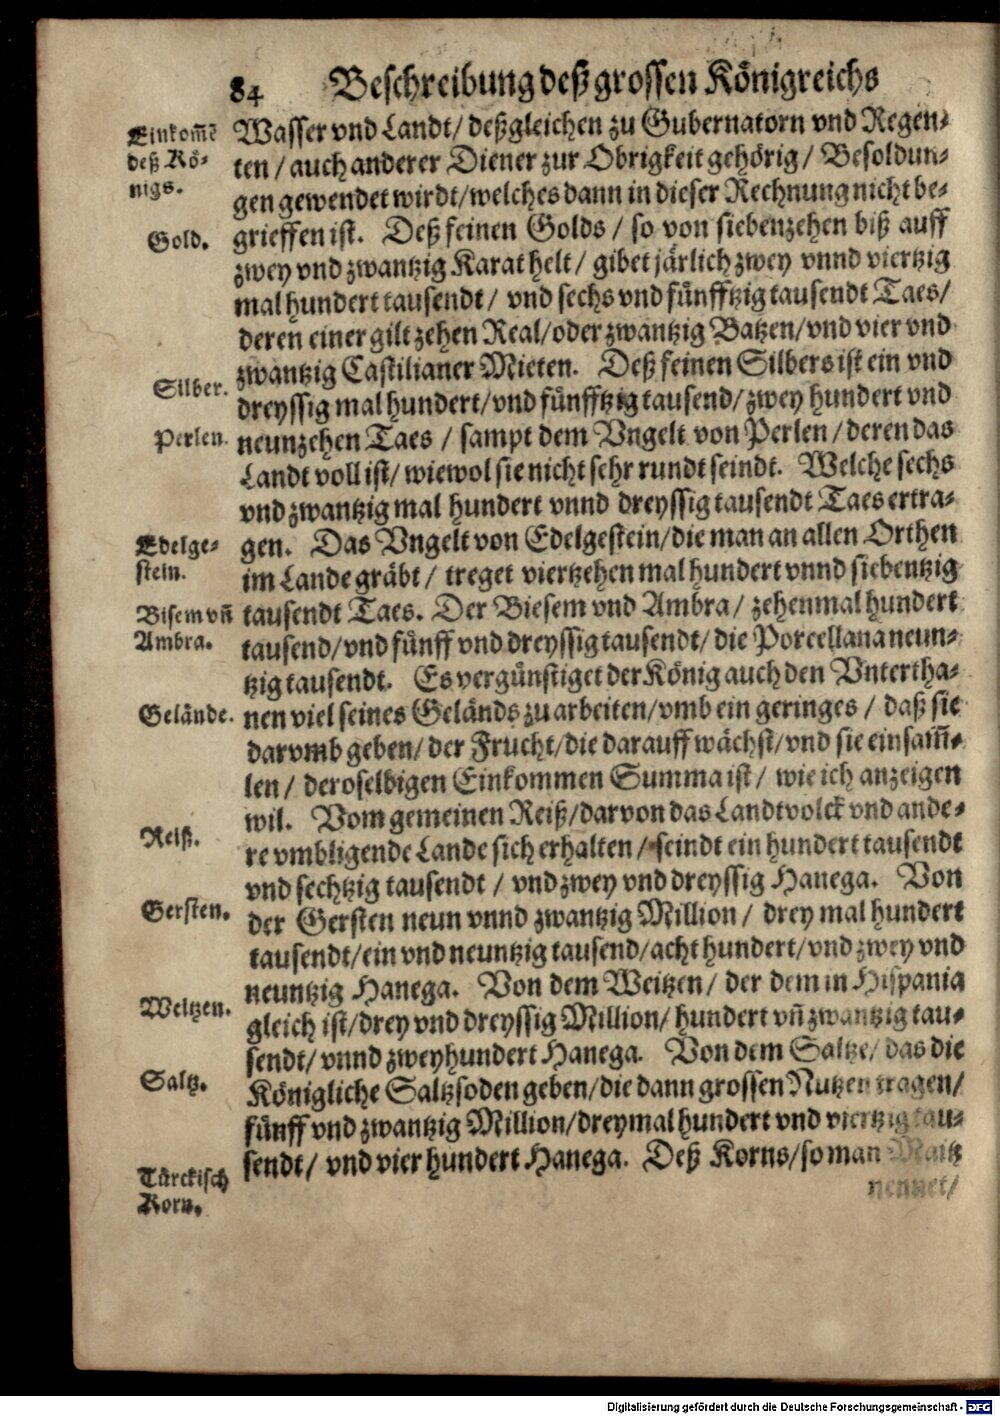 84 Beschreibung deß grossen Königreichs
Einkom̃ẽ
deß Kö-
nigs.
Wasser vnd Landt/ deßgleichen zu Gubernatorn vnd Regen-
ten / auch anderer Diener zur Obrigkeit gehörig / Besoldun-
gen gewendet wirdt/welches dann in dieser Rechnung nicht be-
Gold.
grieffen ist. Deß feinen Golds / so von siebenzehen biß auff
zwey vnd zwantzig Karat helt / gibet järlich zwey vnnd viertzig
mal hundert tausendt / vnd sechs vnd fünfftzig tausendt Taes/
deren einer gilt zehen Real/oder zwantzig Batzen/vnd vier vnd
Silber.
zwantzig Castilianer Mieten. Deß feinen Silbers ist ein vnd
dreyssig mal hundert/vnd fünfftzig tausend/zwey hundert vnd
Perlen.
neunzehen Taes / sampt dem Vngelt von Perlen / deren das
Landt voll ist/ wiewol sie nicht sehr rundt seindt. Welche sechs
vnd zwantzig mal hundert vnnd dreyssig tausendt Taes ertra-
Edelge-
stein.
gen. Das Vngelt von Edelgestein/die man an allen Orthen
im Lande gräbt / treget viertzehen mal hundert vnnd siebentzig
Bisem vñ
Ambra.
tausendt Taes. Der Biesem vnd Ambra / zehenmal hundert
tausend/vnd fünff vnd dreyssig tausendt/ die Porcellana neun-
tzig tausendt. Es vergünstiget der König auch den Vntertha-
Gelände.
nen viel seines Geländs zu arbeiten/vmb ein geringes / daß sie
darvmb geben/ der Frucht/die darauff wächst/vnd sie einsam̃-
len / deroselbigen Einkommen Summa ist / wie ich anzeigen
wil. Vom gemeinen Reiß/darvon das Landtvolck vnd ande-
Reiß.
re vmbligende Lande sich erhalten / seindt ein hundert tausendt
vnd sechtzig tausendt / vnd zwey vnd dreyssig Hanega. Von
Gersten.
der Gersten neun vnnd zwantzig Million / drey mal hundert
tausendt/ein vnd neuntzig tausend/acht hundert/vnd zwey vnd
neuntzig Hanega. Von dem Weitzen / der dem in Hispania
Weitzen.
gleich ist/drey vnd dreyssig Million/ hundert vñ zwantzig tau-
sendt/ vnnd zweyhundert Hanega. Von dem Saltze/ das die
Saltz.
Königliche Saltzsoden geben/die dann grossen Nutzen tragen/
fünff vnd zwantzig Million/dreymal hundert vnd viertzig tau-
sendt/ vnd vier hundert Hanega. Deß Korns/so man Maitz
Türckisch
Korn.
nennet/
Digitalisierung gefördert durch die Deutsche Forschungsgemeinschaft - DFG